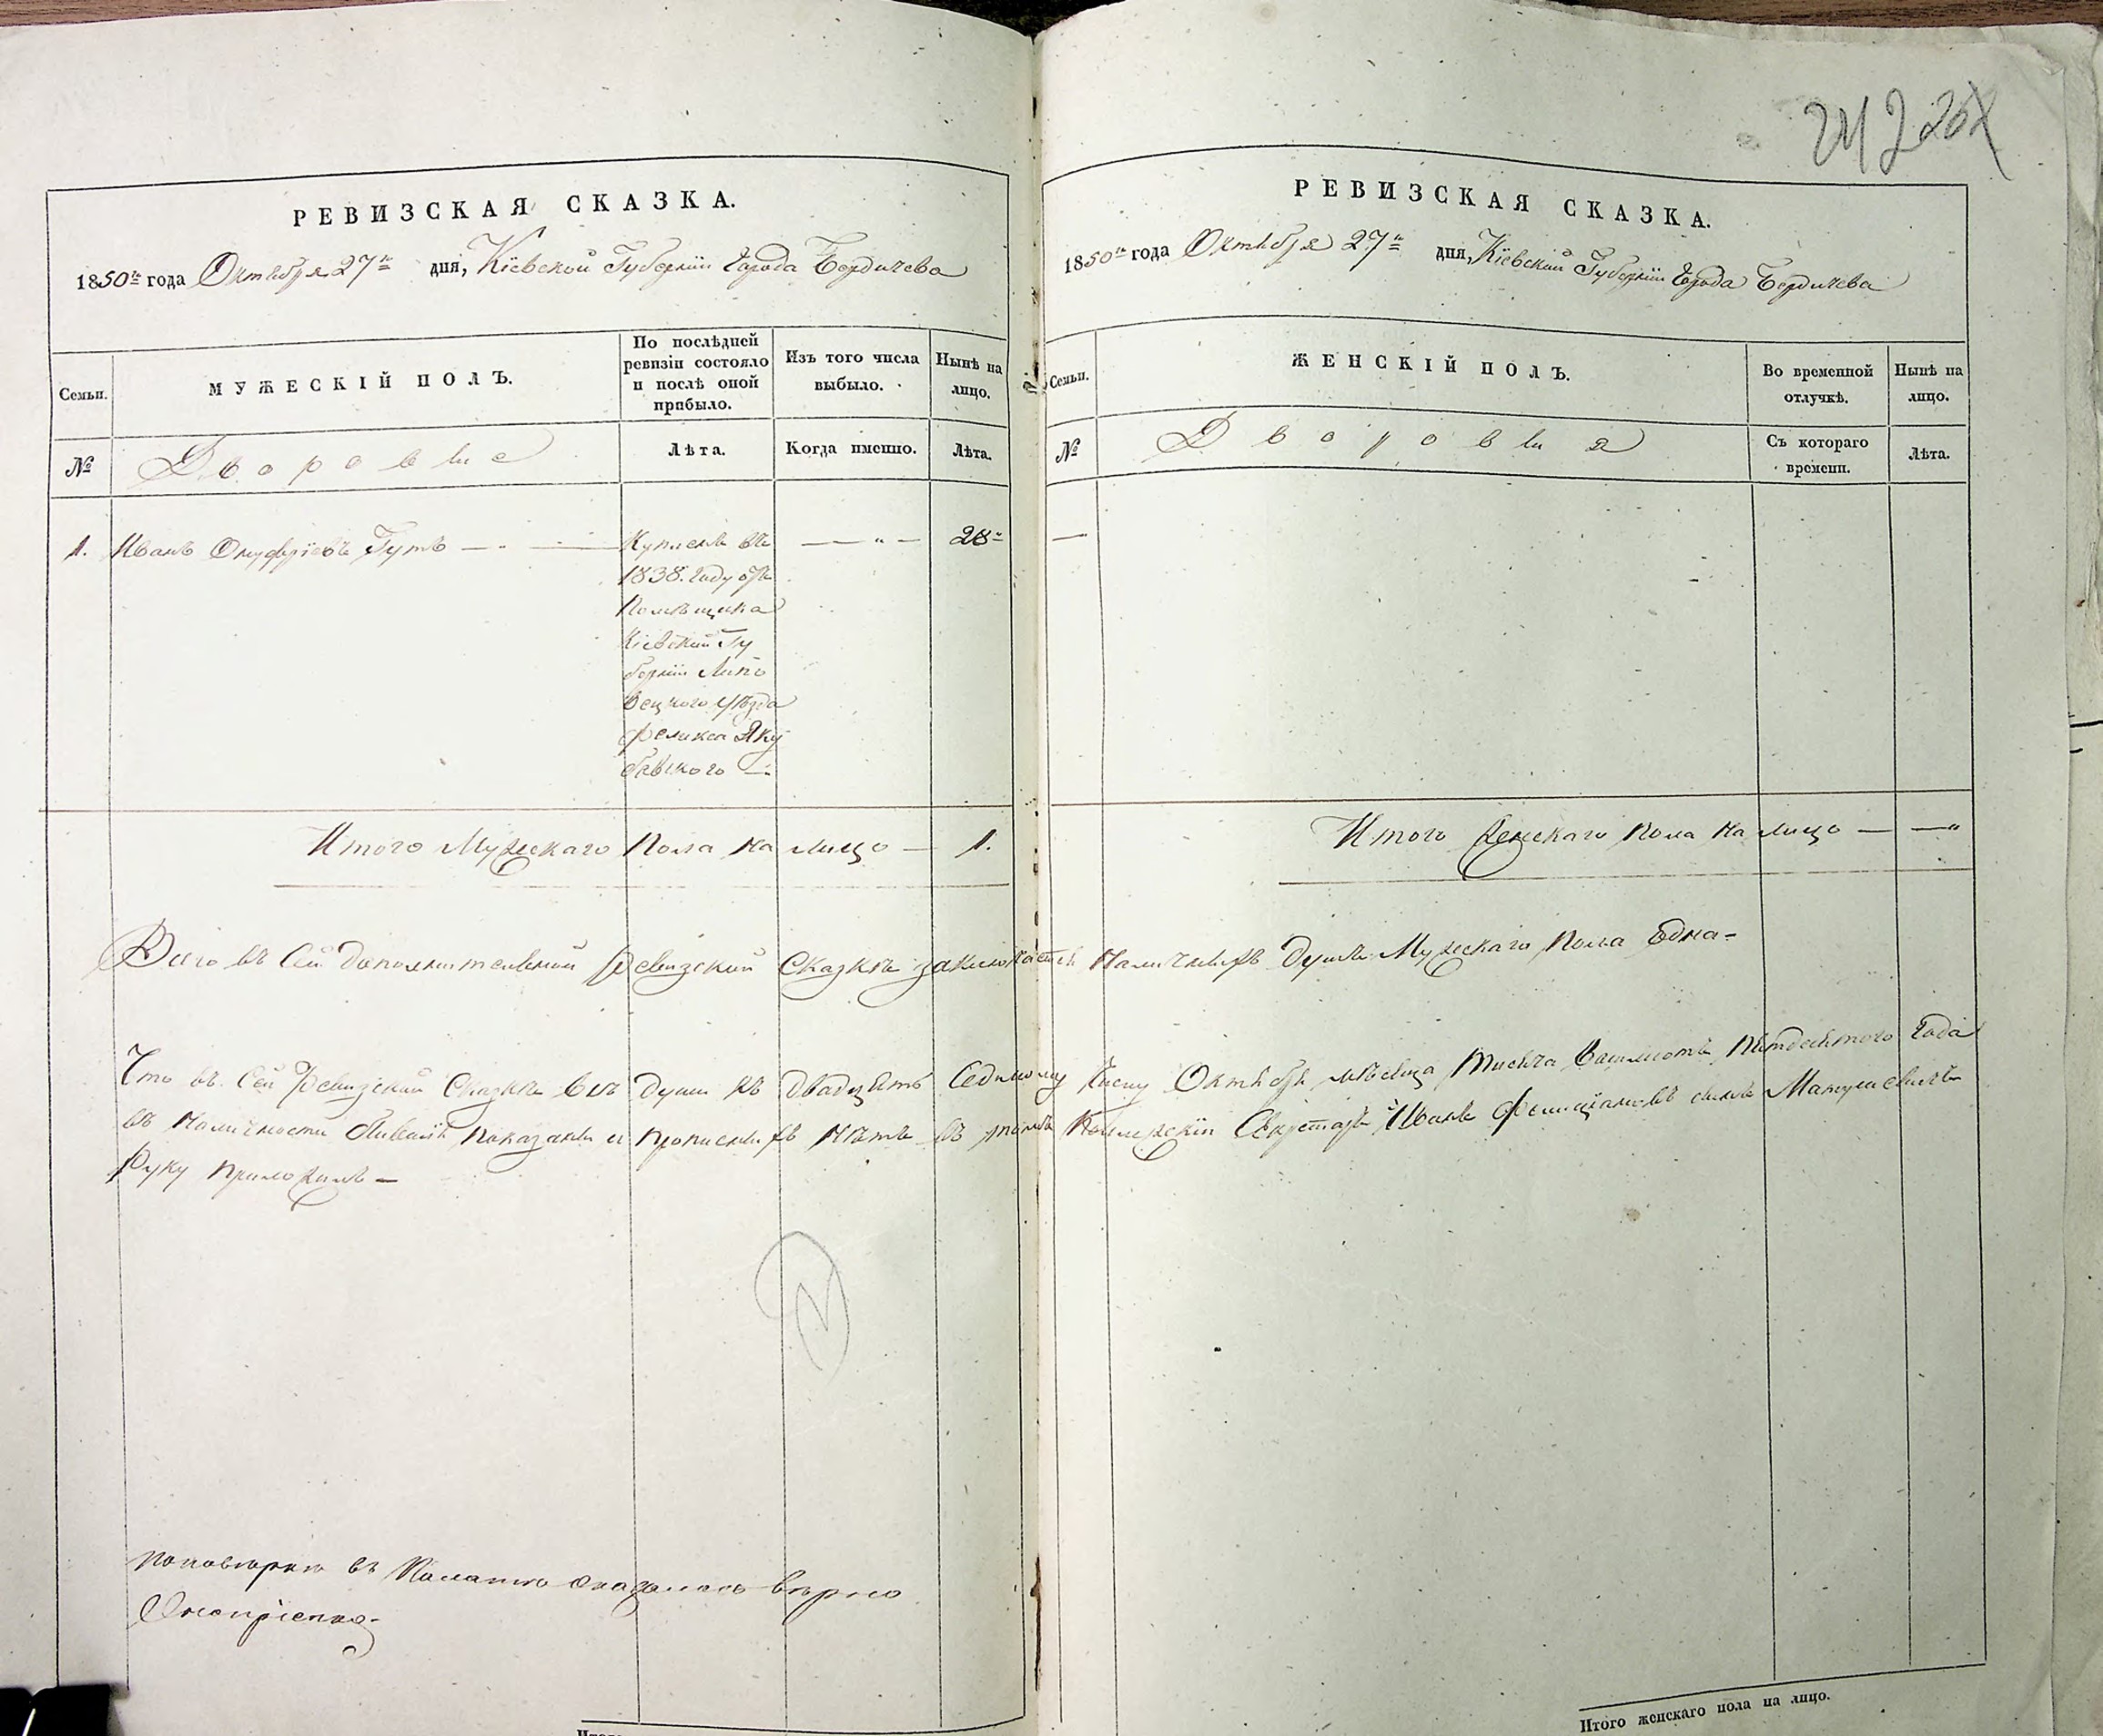 РЕВИЗСКАЯ СКАЗКА.
1850го года Октября 27го дня, Кіевской Губерніи Города Бердичева
Семьи.
МУЖЕСКІЙ ПОЛЪ.
По послѣдней
ревизіи состояло
и послѣ оной
прибыло.
Изъ того числа
выбыло.
Нынѣ на
лицо.
№
Дворовые
Лѣта.
Когда именно.
Лѣта.
1. Иванъ Онуфріевъ Гутъ
Купленъ въ
1838. году отъ
Помѣщика
Кіевской Гу
берніи Липо
вецкого уѣзда
Феликса Яку
бовского
28
Итого Мужескаго Пола на лицо — 1.
РЕВИЗСКАЯ СКАЗКА.
1850го года Октября 27го дня, Кіевской Губерніи Города Бердичева
Семьи.
ЖЕНСКІЙ ПОЛЪ.
Во временной
отлучкѣ.
Нынѣ на
лицо.
№
Дворовыя
Съ котораго
времени.
Лѣта.
Итого Женскаго пола на лицо —
Всего въ сей дополнительной Ревизской Сказкѣ заключается наличныхъ душъ Мужескаго Пола Одна
Что въ сей Ревизской Сказкѣ всѣ души къ двадцать Седьмому числу Октября мѣсяца Тысяча Восимсотъ Пятдесятого Года
въ наличности бывшія показаны и прописныхъ нѣтъ въ томъ Коллежскій Секретарь Иванъ Фелиціановъ сынъ Матушевичъ
Руку приложилъ —
По повѣркѣ въ Палатѣ оказалось вѣрно
Итого женскаго пола на лицо.